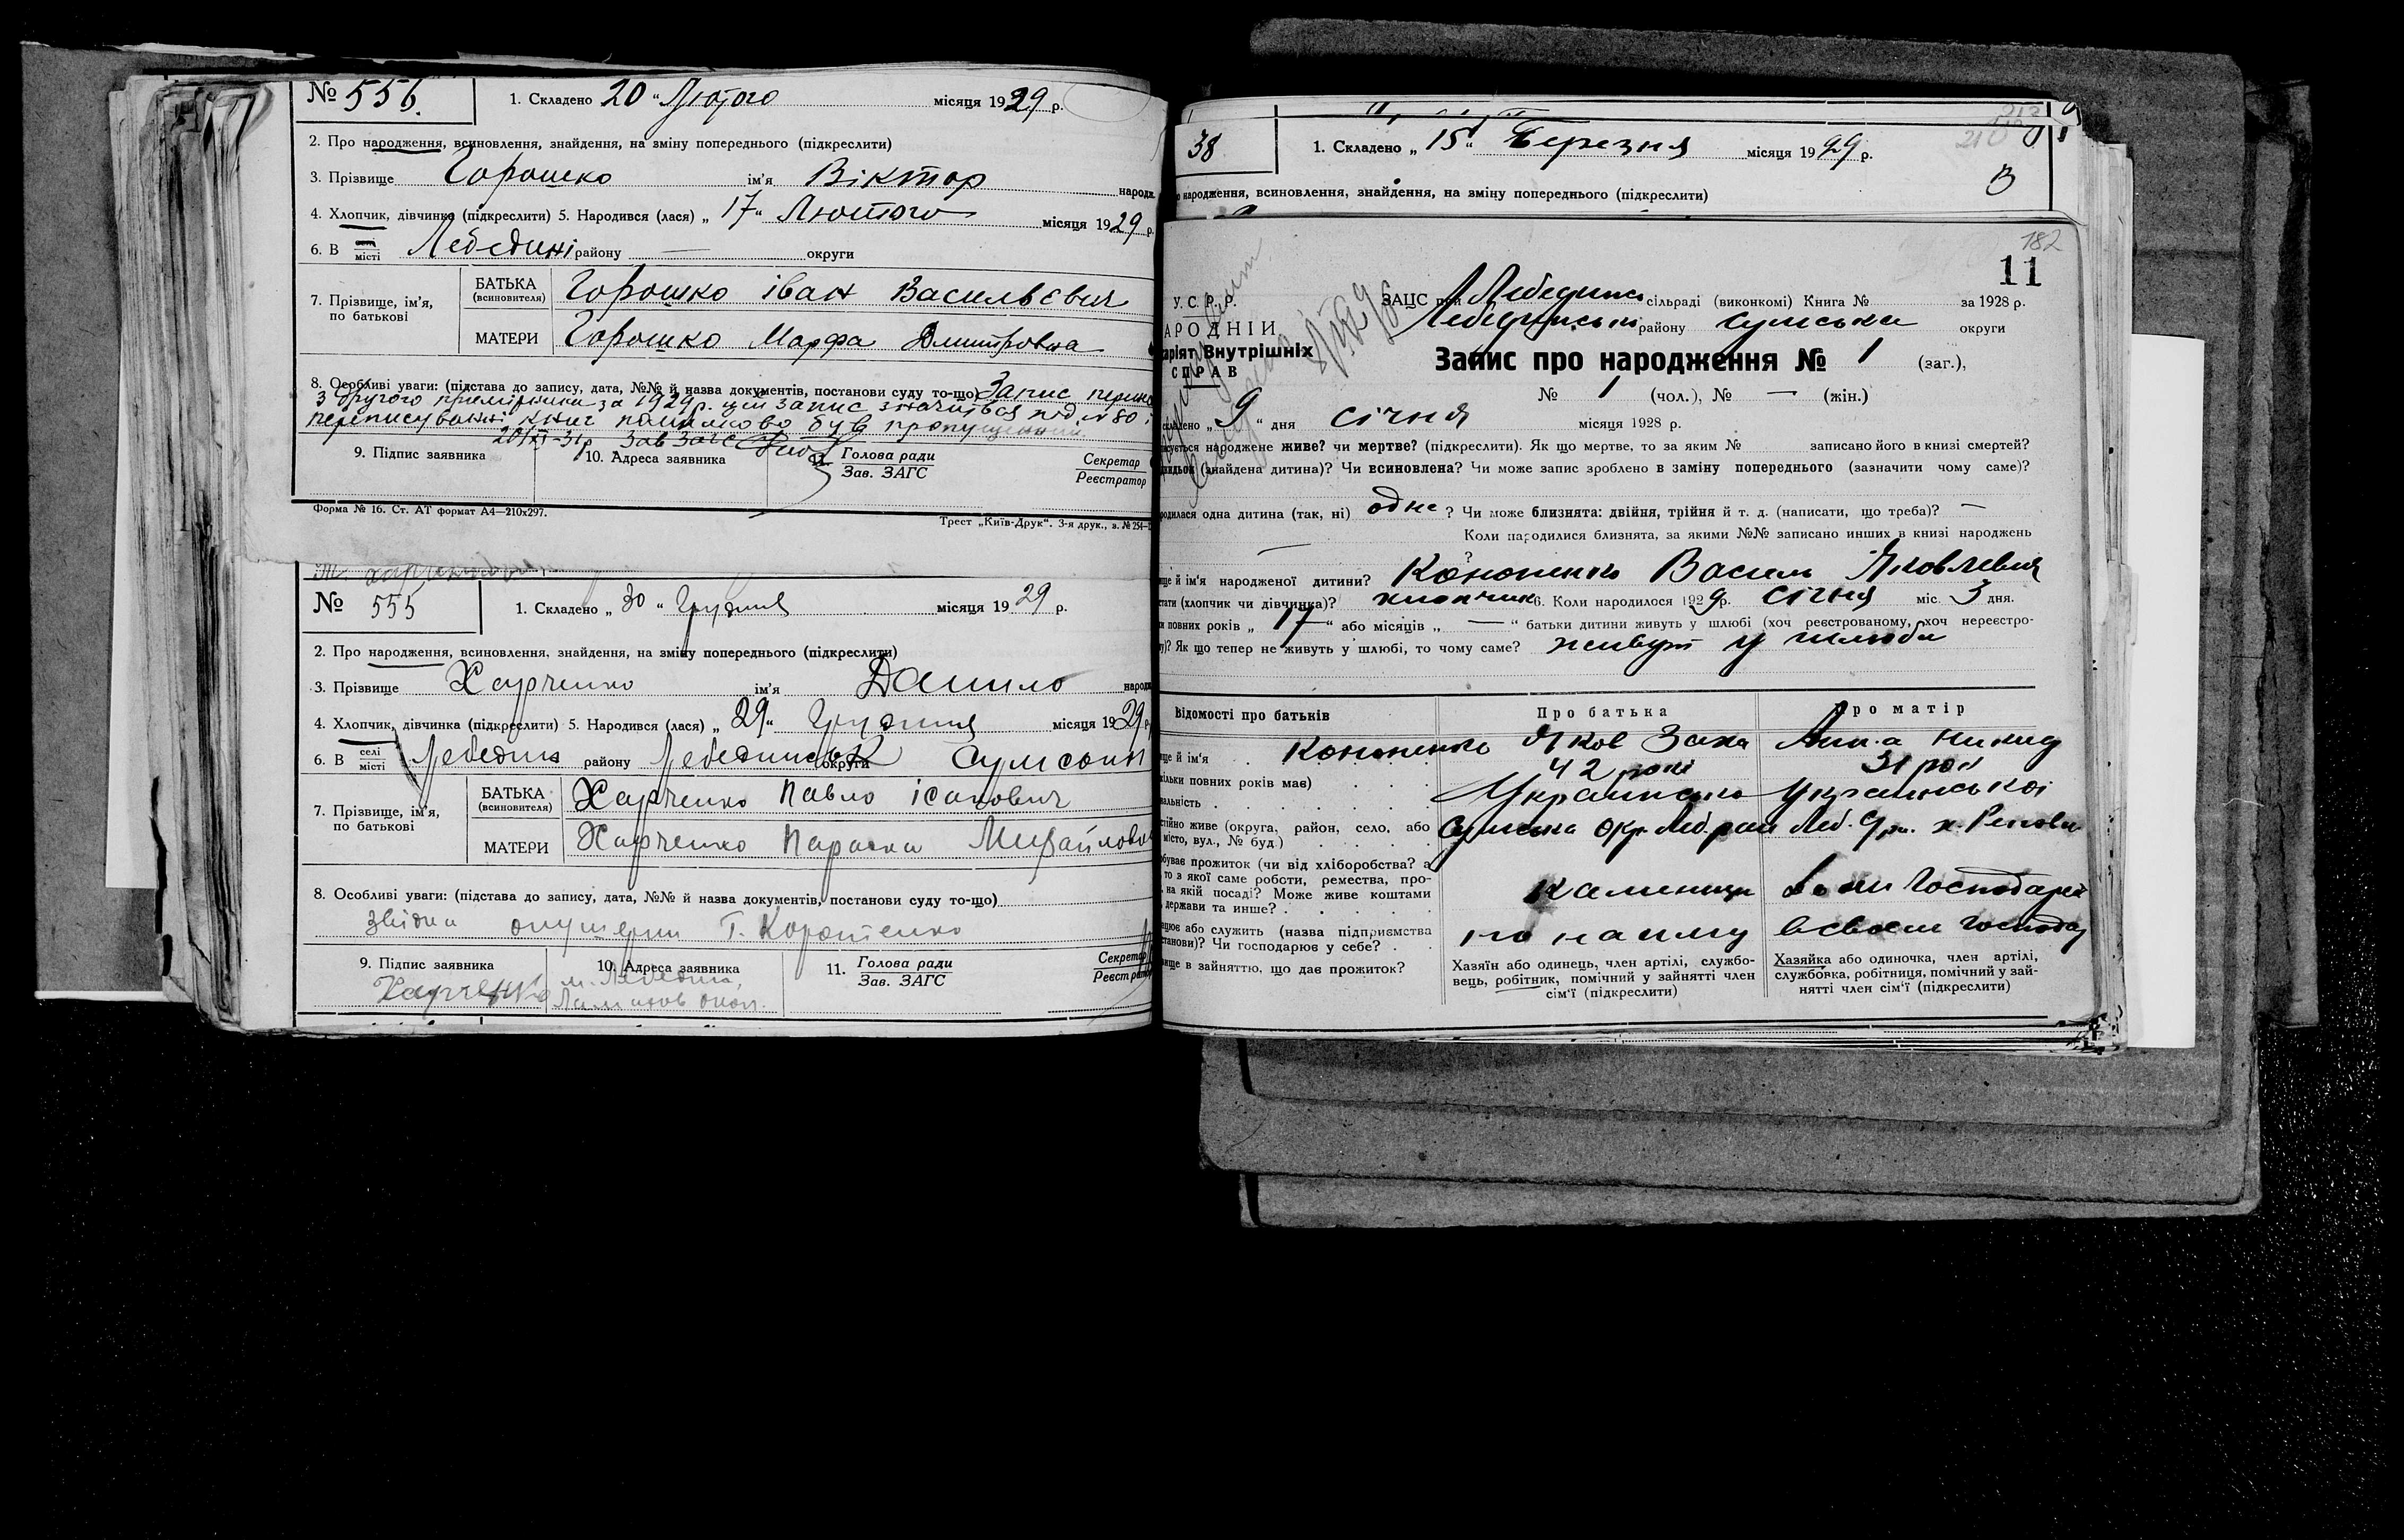 № 556. 1. Складено 20 „Лютого місяця 1929 р.
2. Про народження, всиновлення, знайдення, на зміну попереднього (підкреслити)
3. Прізвище Горошко ім'я Віктор народж
4. Хлопчик, дівчинка (підкреслити) 5. Народився (лася) „ 17 “ Лютого місяця 1929 р.
6. В місті Лебедині району — округи
7. Прізвище, ім'я, по батькові
БАТЬКА (всиновителя) Горошко Іван Васильєвич
МАТЕРИ Горошко Марфа Дмитровна
8. Особливі уваги: (підстава до запису, дата, №№ й назва документів, постанови суду то-що) Запис
з другого примірника за 1929 р. цей запис значиться під № 80 і
переписуванні книг помилково був пропущений
20/XI-31р Зав Загс
9. Підпис заявника 10. Адреса заявника 11. Голова ради Секретар
Зав. ЗАГС Реєстратор
Форма № 16. Ст. АТ формат А4—210х297.
Трест „Київ-Друк“. 3-я друк., з. № 254
№ 555 1. Складено „ 30 “ Грудня місяця 1929 р.
2. Про народження, всиновлення, знайдення, на зміну попереднього (підкреслити)
3. Прізвище Харченко ім'я Данило народж
4. Хлопчик, дівчинка (підкреслити) 5. Народився (лася) „ 29 “ Грудня місяця 1929 р.
6. В селі місті Лебедин району Лебединськ округи Сумської
7. Прізвище, ім'я, по батькові
БАТЬКА (всиновителя) Харченко Павло Ісакович
МАТЕРИ Харченко Параска Михайловн
8. Особливі уваги: (підстава до запису, дата, №№ й назва документів, постанови суду то-що)
Звідка акушерки Т. Коротенко
9. Підпис заявника 10. Адреса заявника 11. Голова ради Секретар
Зав. ЗАГС Реєстратор
Харченко м. Лебедин,
38 1. Складено „ 15 “ Березня місяця 1929 р.
народження, всиновлення, знайдення, на зміну попереднього (підкреслити)
В
182
11
У. С. Р. Р. ЗАЦС при Лебединс сільраді (виконкомі) Книга № за 1928 р.
АРОДНІЙ Лебединськ району Сумська округи
аріят Внутрішніх
СПРАВ
Запис про народження № 1 (заг.),
№ 1 (чол.), № — (жін.)
складено „ 9 “ дня січня місяця 1928 р.
народжене живе? чи мертве? (підкреслити). Як що мертве, то за яким № записано його в книзі смертей?
(знайдена дитина)? Чи всиновлена? Чи може запис зроблено в заміну попереднього (зазначити чому саме)?
одилася одна дитина (так, ні) одне ? Чи може близнята: двійня, трійня й т. д. (написати, що треба)? —
Коли народилися близнята, за якими №№ записано инших в книзі народжень
— ?
ще й ім'я народженої дитини? Кононенко Василь Яковлевич
стати (хлопчик чи дівчинка)? хлопчик 6. Коли народилося 1929 р. січня міс. 3 дня.
повних років „ 17 “ або місяців „ — “ батьки дитини живуть у шлюбі (хоч реєстрованому, хоч нереєстро-
)? Як що тепер не живуть у шлюбі, то чому саме? живут у шлюби
Відомості про батьків Про батька Про матір
ще й ім'я Кононенко Яков Заха Анна Никид
кільки повних років має) 42 рокі 31 рок
альність Українська Української
стійно живе (округа, район, село, або місто, вул., № буд.) Сумська окр. Леб. рай Леб.
буває прожиток (чи від хліборобства? а то з якої саме роботи, ремества, про- на якій посаді? Може живе коштами держави та инше?
цює або служить (назва підприємства станови)? Чи господарює у себе? по найму в своем господар
вище в зайняттю, що дає прожиток?
Хазяїн або одинець, член артілі, службо-
вець, робітник, помічний у зайнятті член
сім'ї (підкреслити)
Хазяйка або одиночка, член артілі,
службовка, робітниця, помічний у зай-
нятті член сім'ї (підкреслити)